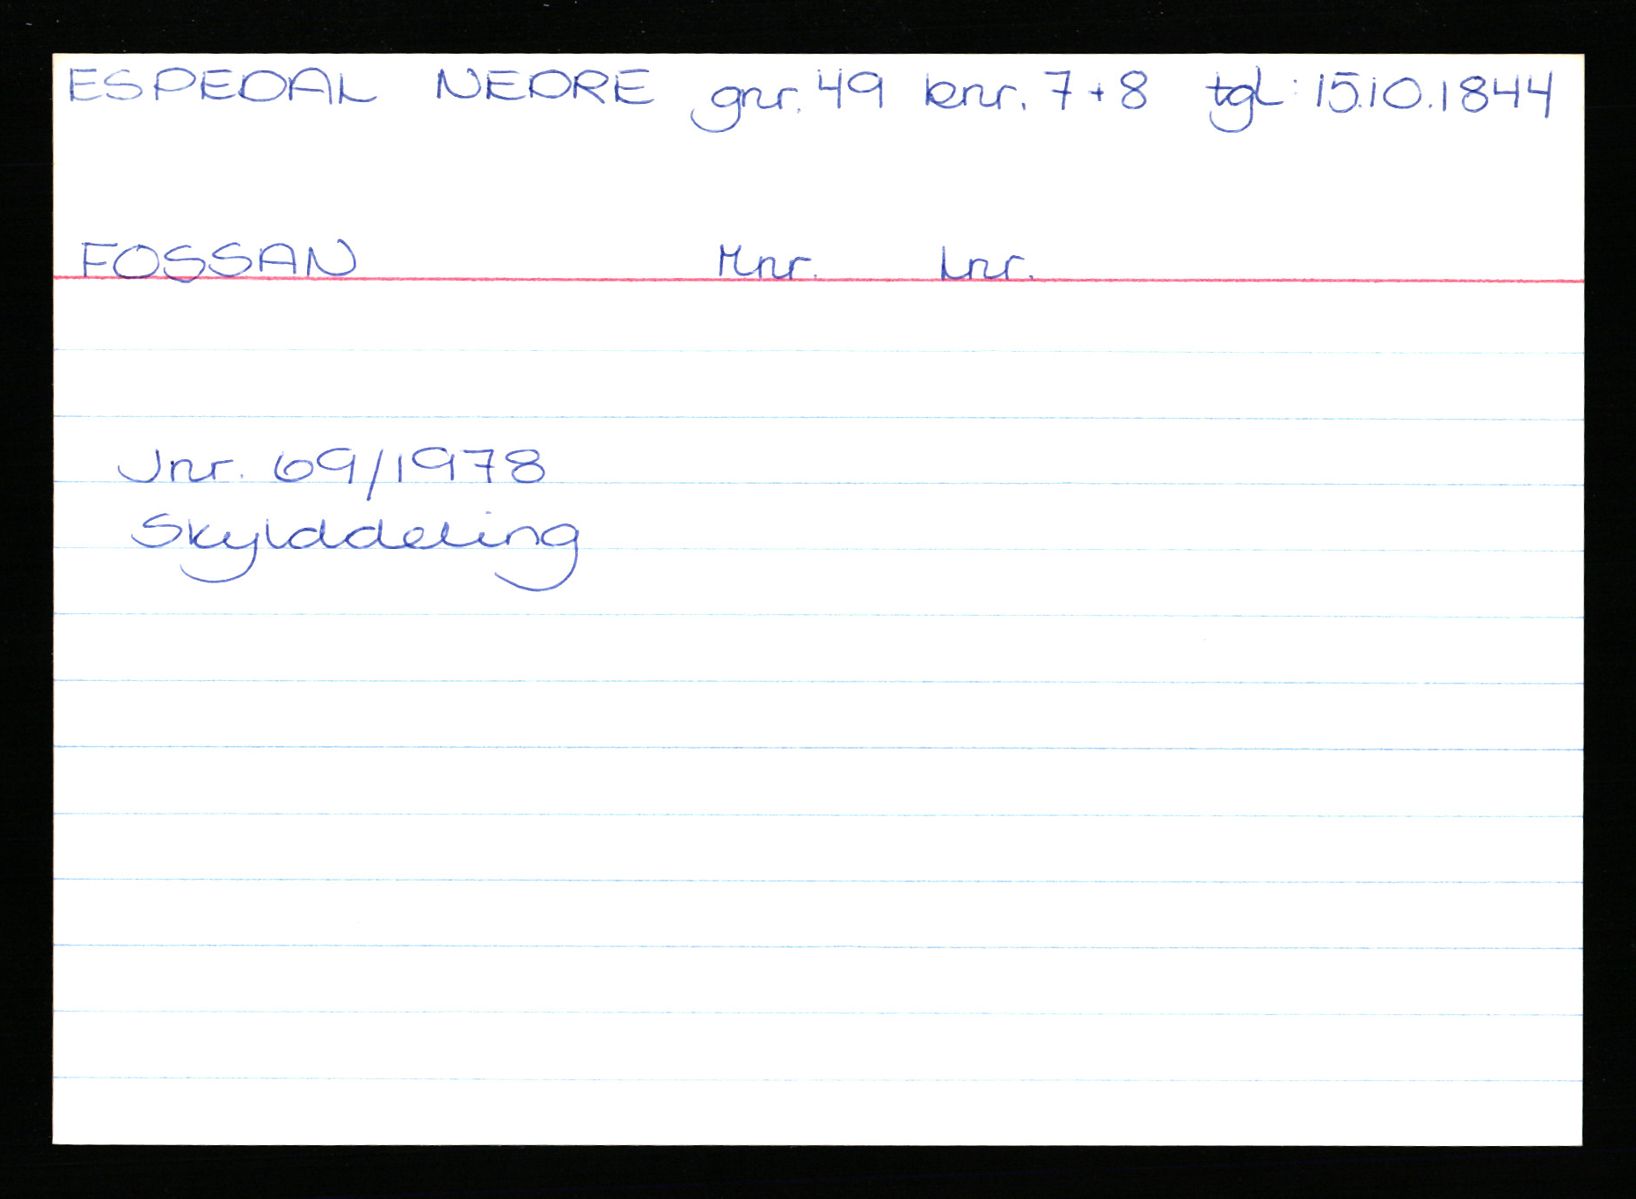 ESPEDAL NEDRE gnr. 49 bnr. 7+8 tgl: 15.10.1844
FOSSAN Mnr. Lnr.
Jnr. 69/1978
Skylddeling